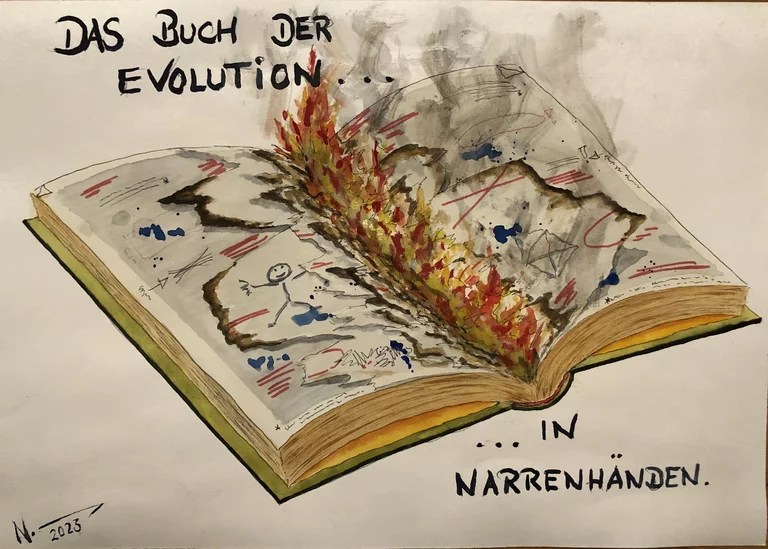 DAS BUCH DER
EVOLUTION...
... IN
NARRENHÄNDEN.
N. 2023